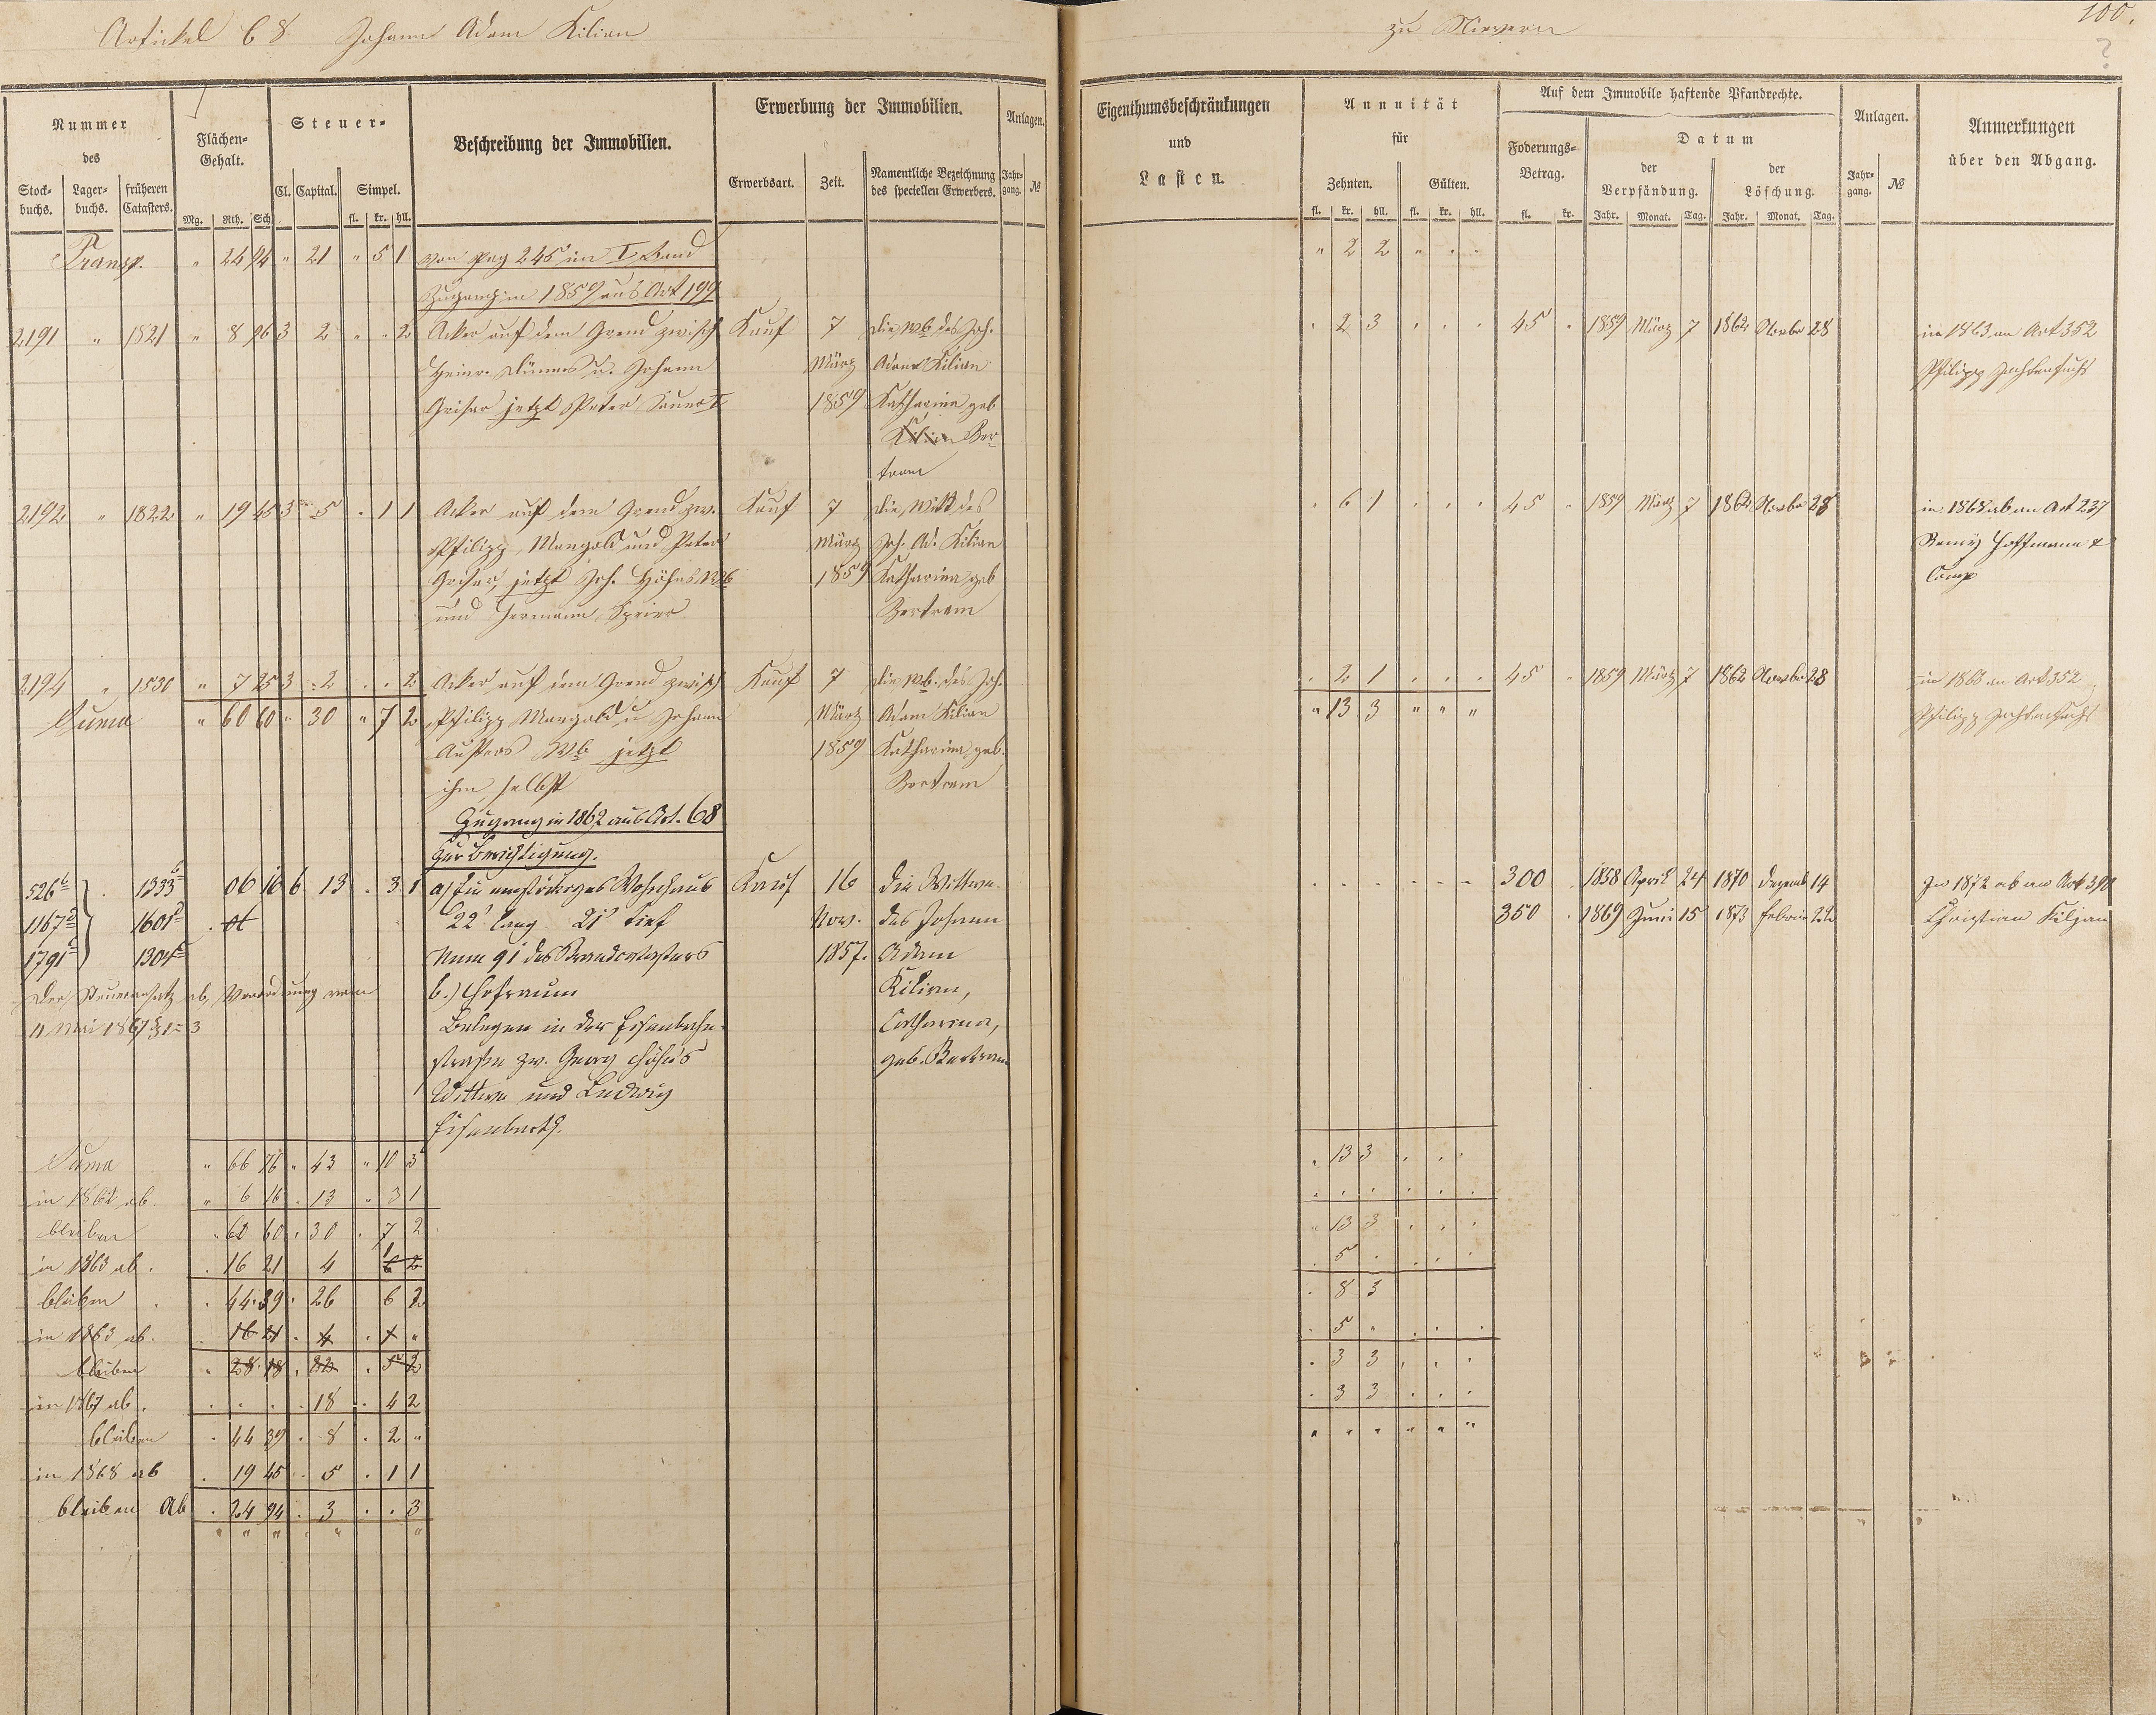 Artikel 68 Johann Adam Kilian
zu Nievern
100.
?
Nummer
des
Stock-
buchs.
Lager-
buchs.
früheren
Catasters.
Flächen-
Gehalt.
Mg. Rth. Sch
Steuer-
Cl. Capital. Simpel.
fl. kr. hll.
Beschreibung der Immobilien.
Erwerbung der Immobilien.
Erwerbsart. Zeit.
Namentliche Bezeichnung
des speciellen Erwerbers.
Anlagen.
Jahr-
gang. №
Eigenthumsbeschränkungen
und
Lasten.
Annuität
für
Zehnten. Gülten.
fl. kr. hll. fl. kr. hll.
Auf dem Immobile haftende Pfandrechte.
Foderungs-
Betrag.
fl. kr.
Datum
der
Verpfändung.
der
Löschung.
Jahr. Monat. Tag. Jahr. Monat. Tag.
Anlagen.
Jahr-
gang. №
Anmerkungen
über den Abgang.
Transp. " 24 94 " 21 " 5 1 von pag 245 im I Band " 2 2 " . .
Zugang in 1859 aus Art 199
2191 " 1821 " 8 96 3 2 " . 2 Acker auf dem Grend zwisch Kauf 7 die Wb des Joh. . 2 3 . . . 45 . 1859 März 7 1862 Novbr 28 in 1863 an Art 352
Heinr. Dünnes u. Johann März Adam Kilian Philipp
Griser jetzt Peter Sauer I 1859 Katharina geb
Kilian Ber-
tram
2192 " 1822 " 19 45 3 5 . 1 1 Acker auf dem Grend zw. Kauf 7 die Witt des . 6 1 . . . 45 . 1859 März 7 1862 Novbr 28 in 1868 ab an Art 237
Philipp Mangold und Peter März Joh. Ad. Kilian Remy Hoffmann &
Griser, jetzt Joh. Höhns Wb 1859 Katharina geb Comp
und Hermann Speier Bertram
2194 " 1530 " 7 25 3 2 . . 2 Acker auf dem Grend zwisch Kauf 7 die Wb. des Joh. . 2 1 . . . 45 " 1859 März 7 1862 Novbr 28 in 1863 an Art 352
Suma " 60 60 " 30 " 7 2 Philipp Mangold u Johann März Adam Kilian " 13 3 " " " Philipp
Wb jetzt 1859 Katharina geb.
ihm selbst Bertram
Zugang in 1862 aus Art. 68
zur Berichtigung.
526 b . 1333 06 16 6 13 . 3 1 a) Ein einstöckiges Wohnhaus Kauf 16 die Wittwe . . . . . . 300 . 1858 April 24 1870 Dezemb 14 In 1872 ab an Art
1167 1601 22' lang 21' tief Nov. des Johann 350 . 1869 Juni 15 1873 Februar 22 Christian Kiljan
1791 1304 Num 91 des Brandcatasters 1857. Adam
Der Steueransatz ab, Verordnung vom b.) Hofraum Kilian,
11 Mai 1867 Belegen in der Eisenbahn- Catharina,
straße zw. Georg Höhn's geb. Bertram
Wittwe und Ludwig
Eisenbarth.
Suma " 66 76 " 43 " 10 3 . 13 3 . . .
in 1862 ab. " 6 16 . 13 " 3 1 . . . . . .
bleiben . 60 60 . 30 . 7 2 " 13 3 . . .
in 1863 ab . . 16 21 4 . 5 . . . .
bleiben . . 44 39 . 26 6 2 . 8 3
in 1863 ab. . 16 21 . 4 . 1 " . 5 " . . .
bleiben . 28 18 . 22 . 5 2 . 3 3 . . .
in 1867 ab . . . . . 18 . 4 2 . 3 3 . . .
bleiben . 44 39 . 8 . 2 " " " " " " "
in 1868 ab . 19 45 . 5 . 1 1
bleiben Ab . 24 94 . 3 . . 3